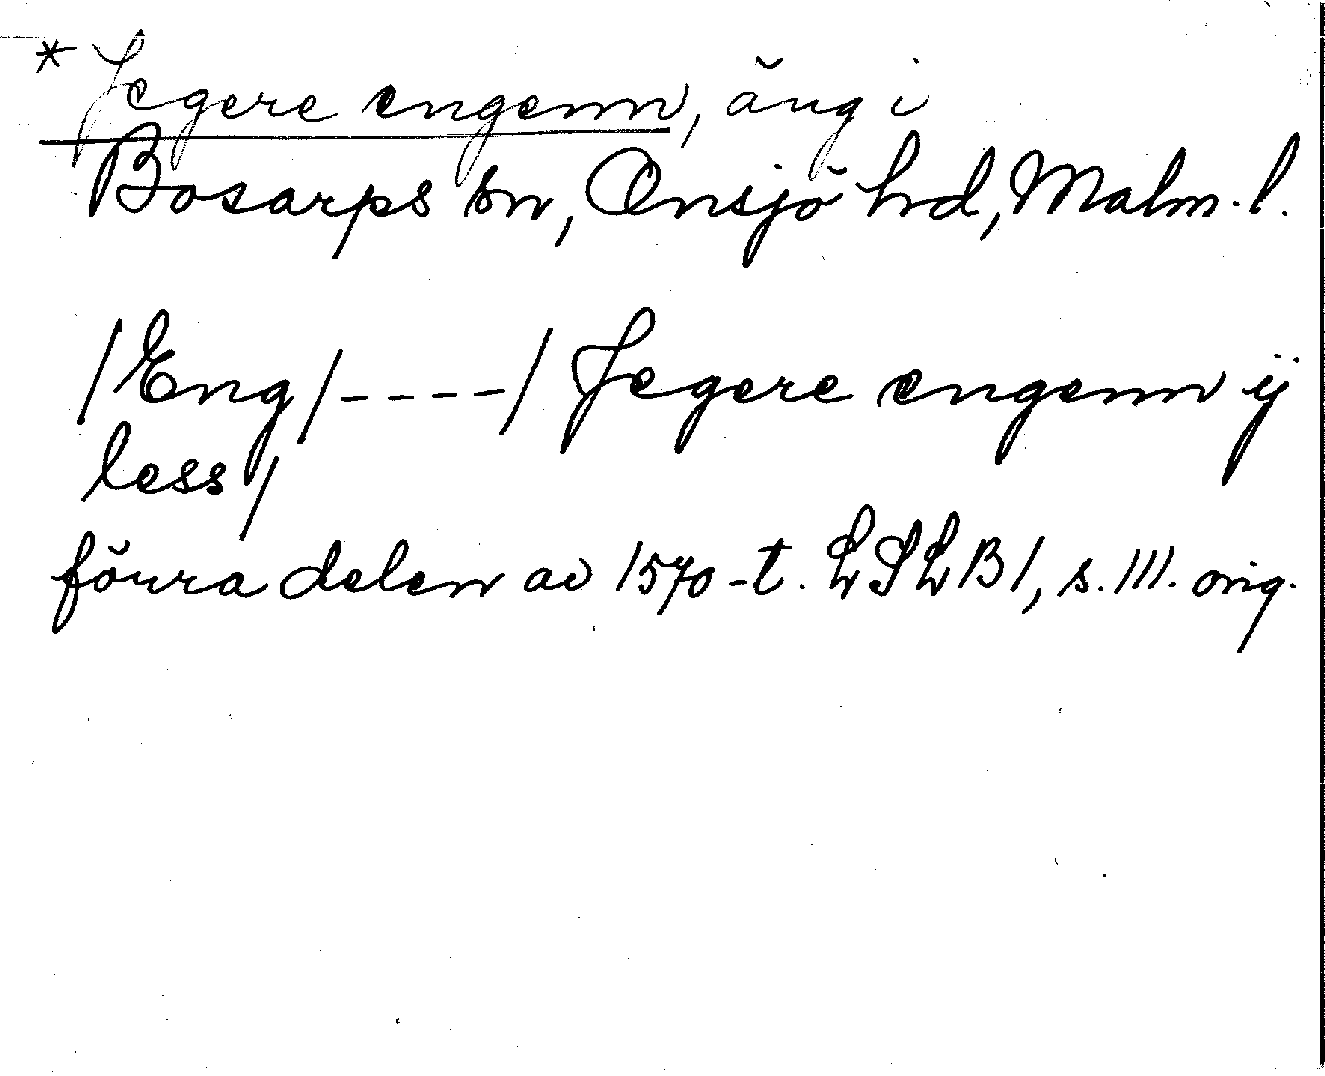 * Jegere engenn, äng i
Bosarps sn, Onsjö hd, Malm. l.
/Eng/----/Jegere engenn ij
less/
förra delen av 1570-t. LSLB1, s. 111. orig.